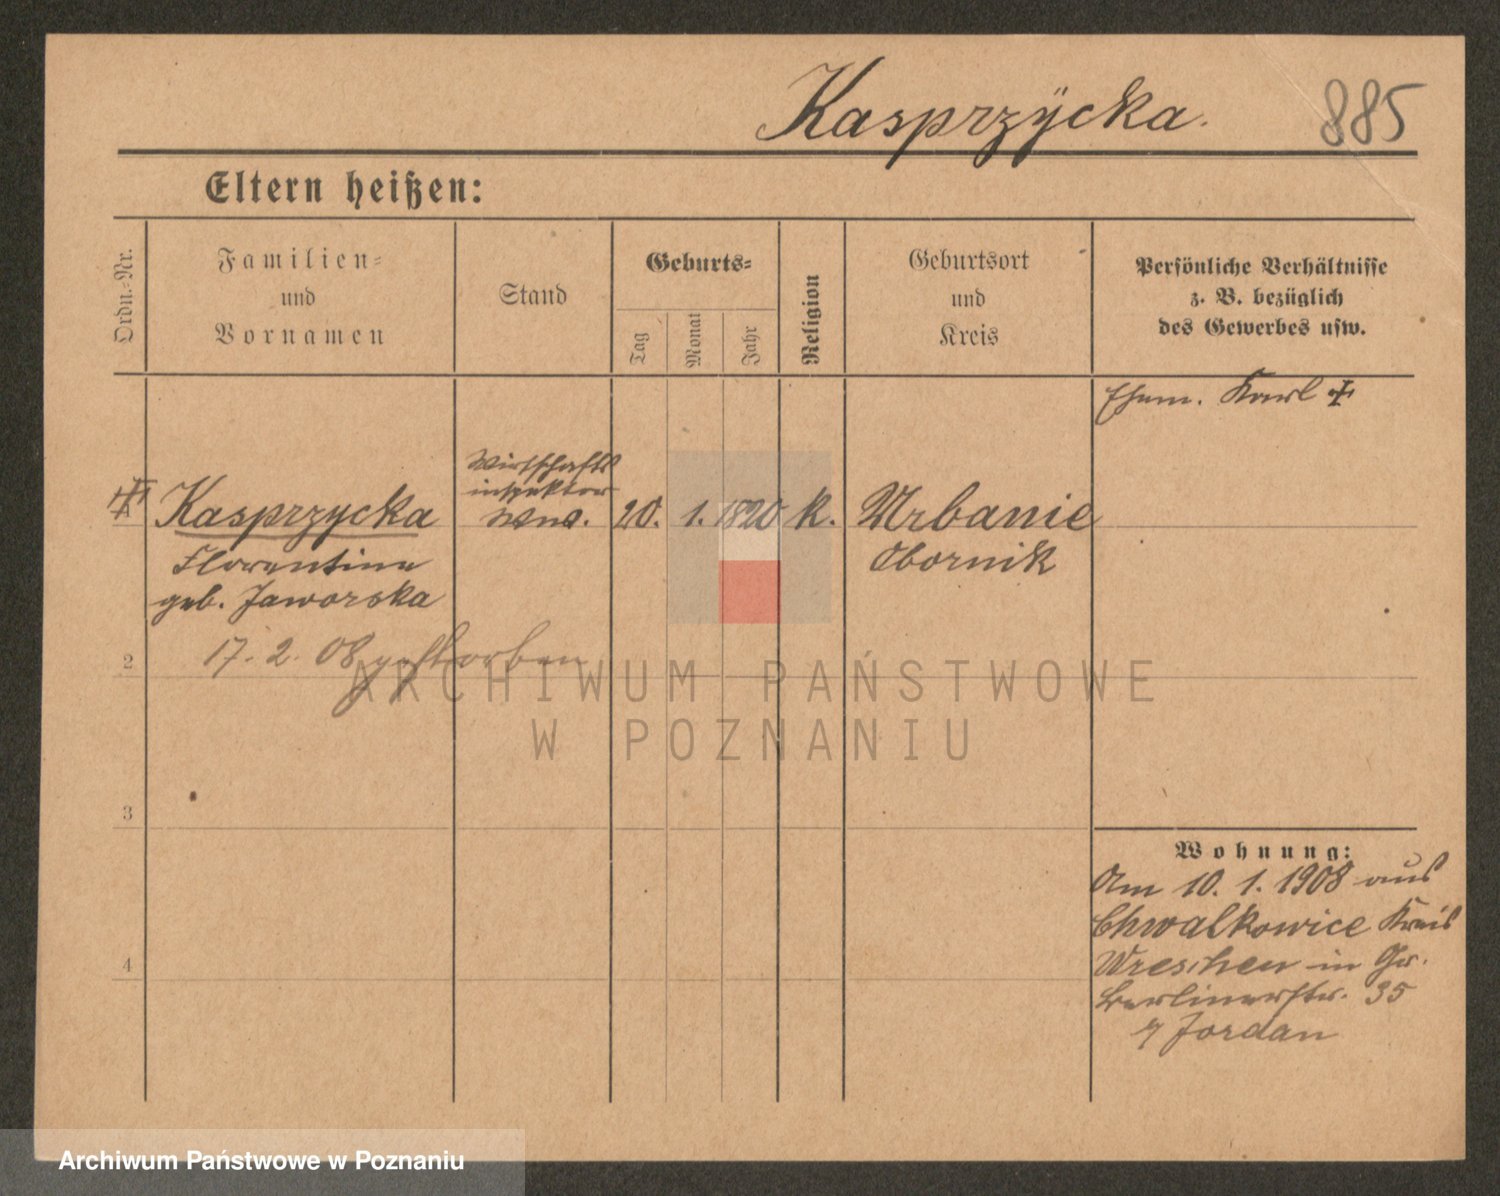 Kasprzÿcka. 885
Eltern heißen:
Ordn.=Nr.
Familien=
und
Vornamen
Stand
Geburts=
Tag
Monat
Jahr
Religion
Geburtsort
und
Kreis
Persönliche Verhältnisse
z. B. bezüglich
des Gewerbes usw.
Ehem. Karl ✝
Kasprzycka
Florentine
geb. Jaworska
Wirtschafts
inspektor
Wwe.
20. 1. 1820 k.
Urbanie
Obornik
17. 2. 08 gestorben
2
3
4
Wohnung:
Am 10. 1. 1908 aus
Chwalkowice Kreis
Wreschen in Gr.
Berlinerstr. 35
Jordan
ARCHIWUM PAŃSTWOWE
W POZNANIU
Archiwum Państwowe w Poznaniu